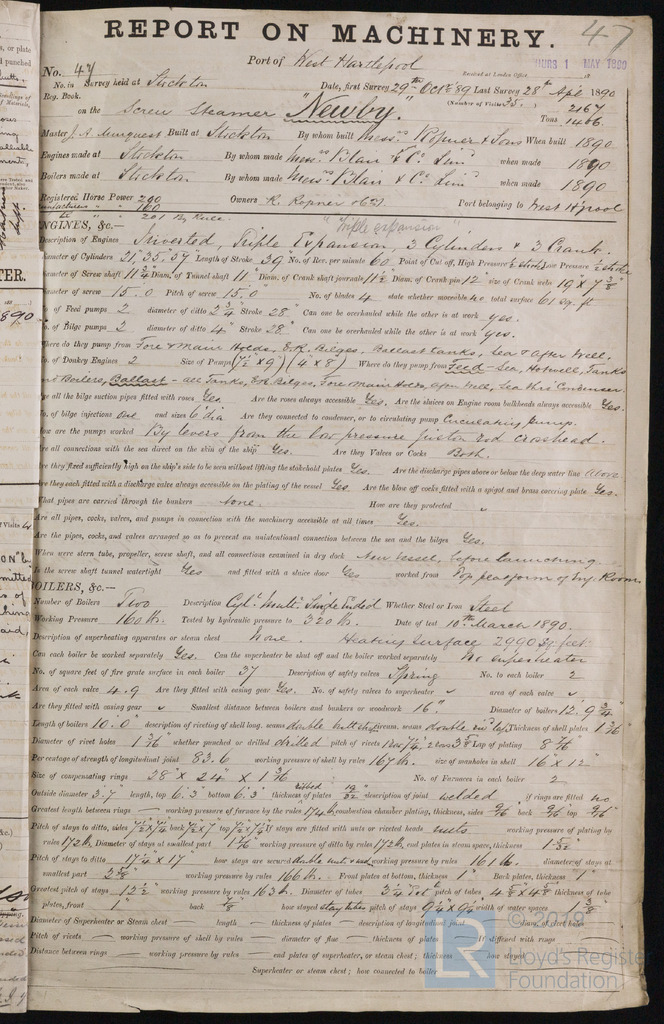 REPORT ON MACHINERY.
47
Port of West Hartlepool
Received at London Office THURS 1 MAY 1890
No. 47
No. in Survey held at Stockton Date, first Survey 29th Octr 89 Last Survey 28th Apl 1890
Reg. Book. (Number of Visits 35.)
on the Screw Steamer "Newby." Tons 2167 1406
Master J. A. Built at Stockton By whom built Messrs Ropner & Sons When built 1890
Engines made at Stockton By whom made Messrs Blair & Co Lim when made 1890
Boilers made at Stockton By whom made Messrs Blair & Co Lim when made 1890
Registered Horse Power 200 Owners R. Ropner & Co. Port belonging to West H'pool
201 By Rule.
ENGINES, &c.— "Triple expansion"
Description of Engines Inverted, Triple Expansion, 3 Cylinders & 3 Crank.
Diameter of Cylinders 21, 35, 57 Length of Stroke 39 No. of Rev. per minute 60 Point of Cut off, High Pressure ½ stroke Low Pressure ½ stroke
Diameter of Screw shaft 11¾ Diam. of Tunnel shaft 11 Diam. of Crank shaft journals 11½ Diam. of Crank pin 12 size of Crank webs 19 x 7⅜
Diameter of screw 15.0 Pitch of screw 15.0 No. of blades 4 state whether moveable no total surface 61 sq. ft
No. of Feed pumps 2 diameter of ditto 2¾ Stroke 28" Can one be overhauled while the other is at work yes.
No. of Bilge pumps 2 diameter of ditto 4" Stroke 28" Can one be overhauled while the other is at work yes.
Where do they pump from Fore & Main Holds, E.R. Bilges, Ballast tanks, Sea & After Well.
No. of Donkey Engines 2 Size of Pumps (7½ x 9) (4 x 8) Where do they pump from Feed - Sea, Hotwell, Tanks
and Boilers, Ballast - all Tanks, E.R. Bilges, Fore & Main Holds, After Well, Sea thro Condenser
Are all the bilge suction pipes fitted with roses Yes. Are the roses always accessible Yes. Are the sluices on Engine room bulkheads always accessible Yes.
No. of bilge injections one and sizes 6" dia Are they connected to condenser, or to circulating pump Circulating pump.
How are the pumps worked By levers from the low pressure piston rod crosshead.
Are all connections with the sea direct on the skin of the ship Yes. Are they Valves or Cocks Both.
Are they fixed sufficiently high on the ship's side to be seen without lifting the stokehold plates Yes. Are the discharge pipes above or below the deep water line above.
Are they each fitted with a discharge valve always accessible on the plating of the vessel Yes Are the blow off cocks fitted with a spigot and brass covering plate Yes.
What pipes are carried through the bunkers None. How are they protected "
Are all pipes, cocks, valves, and pumps in connection with the machinery accessible at all times Yes.
Are the pipes, cocks, and valves arranged so as to prevent an unintentional connection between the sea and the bilges Yes.
When were stern tube, propeller, screw shaft, and all connections examined in dry dock New Vessel, before launching
Is the screw shaft tunnel watertight Yes and fitted with a sluice door Yes worked from Top platform of Eng. Room
BOILERS, &c.—
Number of Boilers Two Description Cyl. Mult. Single Ended Whether Steel or Iron Steel
Working Pressure 160 lb. Tested by hydraulic pressure to 320 lb. Date of test 10th March 1890.
Description of superheating apparatus or steam chest None. Heating Surface 2990 sq. feet.
Can each boiler be worked separately Yes. Can the superheater be shut off and the boiler worked separately No superheater
No. of square feet of fire grate surface in each boiler 37 Description of safety valves Spring No. to each boiler 2
Area of each valve 4.9 Are they fitted with easing gear Yes. No. of safety valves to superheater " area of each valve "
Are they fitted with easing gear " Smallest distance between boilers and bunkers or woodwork 16" Diameter of boilers 12' 9¾"
Length of boilers 10.0" description of riveting of shell long. seams double butt strap circum. seams double riv. lap Thickness of shell plates 1 3/16"
Diameter of rivet holes 1 3/16" whether punched or drilled drilled pitch of rivets Lap of plating
Per centage of strength of longitudinal joint 83.6 working pressure of shell by rules 167 lb. size of manholes in shell 16" x 12"
Size of compensating rings 28" x 24" x 1 3/16 No. of Furnaces in each boiler 2
Outside diameter 3' 7" length, top 6' 3" bottom 6' 3" thickness of plates ribbed 19/32" description of joint welded if rings are fitted no
Greatest length between rings — working pressure of furnace by the rules 174 lb combustion chamber plating, thickness, sides 9/16" back 9/16" top 9/16"
Pitch of stays to ditto, sides 7½ x 7¼ back 7½ x 7" top 7½ x 7¼ If stays are fitted with nuts or riveted heads nuts. working pressure of plating by
rules 172 lb. Diameter of stays at smallest part 1 3/16 working pressure of ditto by rules 172 lb. end plates in steam space, thickness 1 5/32"
Pitch of stays to ditto 17¼ x 17" how stays are secured double nuts & was working pressure by rules 161 lb. diameter of stays at
smallest part 2⅝" working pressure by rules 166 lb. Front plates at bottom, thickness 1" Back plates, thickness 1"
Greatest pitch of stays 12½" working pressure by rules 163 lb. Diameter of tubes 3¼ ext pitch of tubes 4⅝ x 4⅝ thickness of tube
plates, front 1" back ⅞" how stayed stay tubes pitch of stays 9¼ x 9¼ width of water spaces 1⅜"
Diameter of Superheater or Steam chest — length — thickness of plates — description of longitudinal joint diam. of rivet holes
Pitch of rivets — working pressure of shell by rules — diameter of flue — thickness of plates — If stiffened with rings
Distance between rings — working pressure by rules — end plates of superheater, or steam chest; thickness — how stayed
Superheater or steam chest; how connected to boiler
LR
© 2019
Lloyd's Register
Foundation